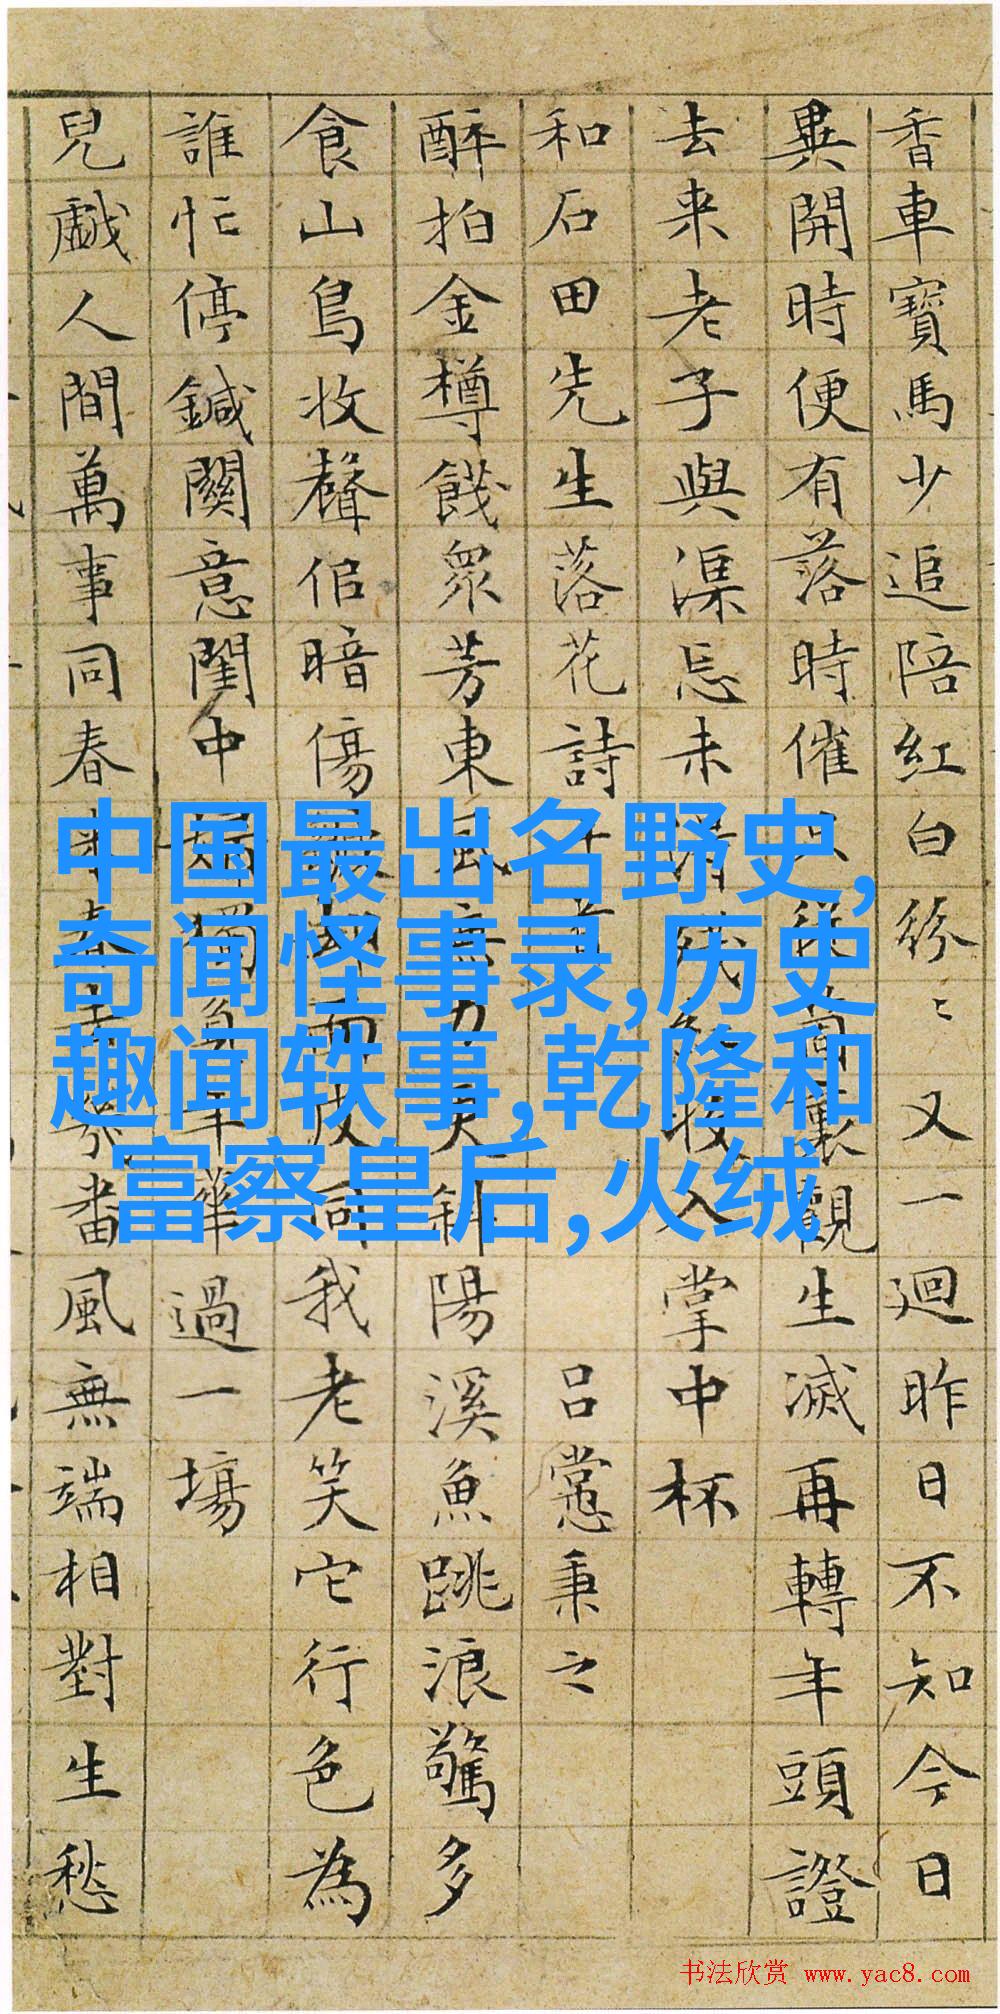 香車寶馬少追陪紅白紛〻又一迴昨日不知今日
異開時便有落時催觀生滅再轉年頭證
去来老子與渠忘未收入掌中杯
和石田先生落花詩十首 吕㦂秉之
醉拍金樽餞眾芳東風無力更斜陽溪魚跳浪驚多
食山鳥收聲佀暗傷面皮同我老笑它行色為
誰忙停鍼關意閨中婦獨負年華過一塲
兒戯人間萬事同春番風無端相對生愁
中国最出名野史,
奇闻怪事录,历史
趣闻轶事,乾隆和
富察皇后,火绒
书法欣赏 www.yac8.com